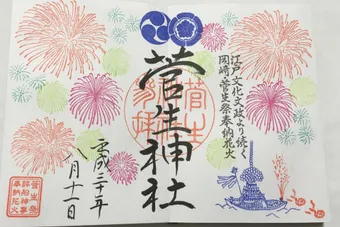 江戸文化文政より続く
岡崎菅生祭奉納花火
菅生神社
平成三十年
八月十一日
菅生祭
鉾船神事
奉納花火